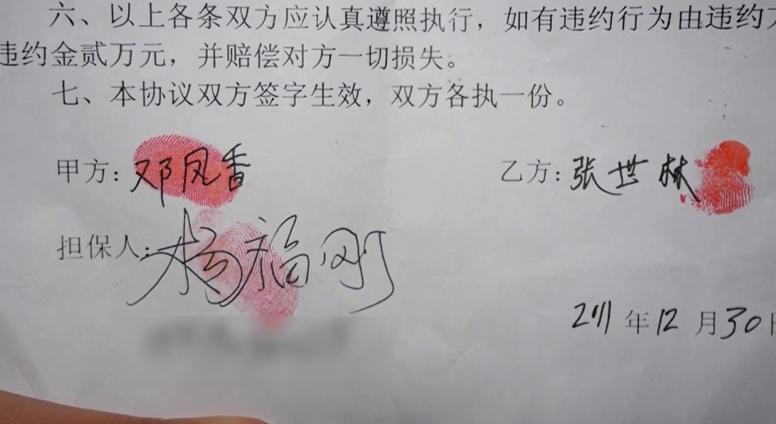 六、以上各条双方应认真遵照执行，如有违约行为由违约
违约金贰万元，并赔偿对方一切损失。
七、本协议双方签字生效，双方各执一份。
甲方：邓凤香 乙方：张世林
担保人：杨福刚
2011年12月30日